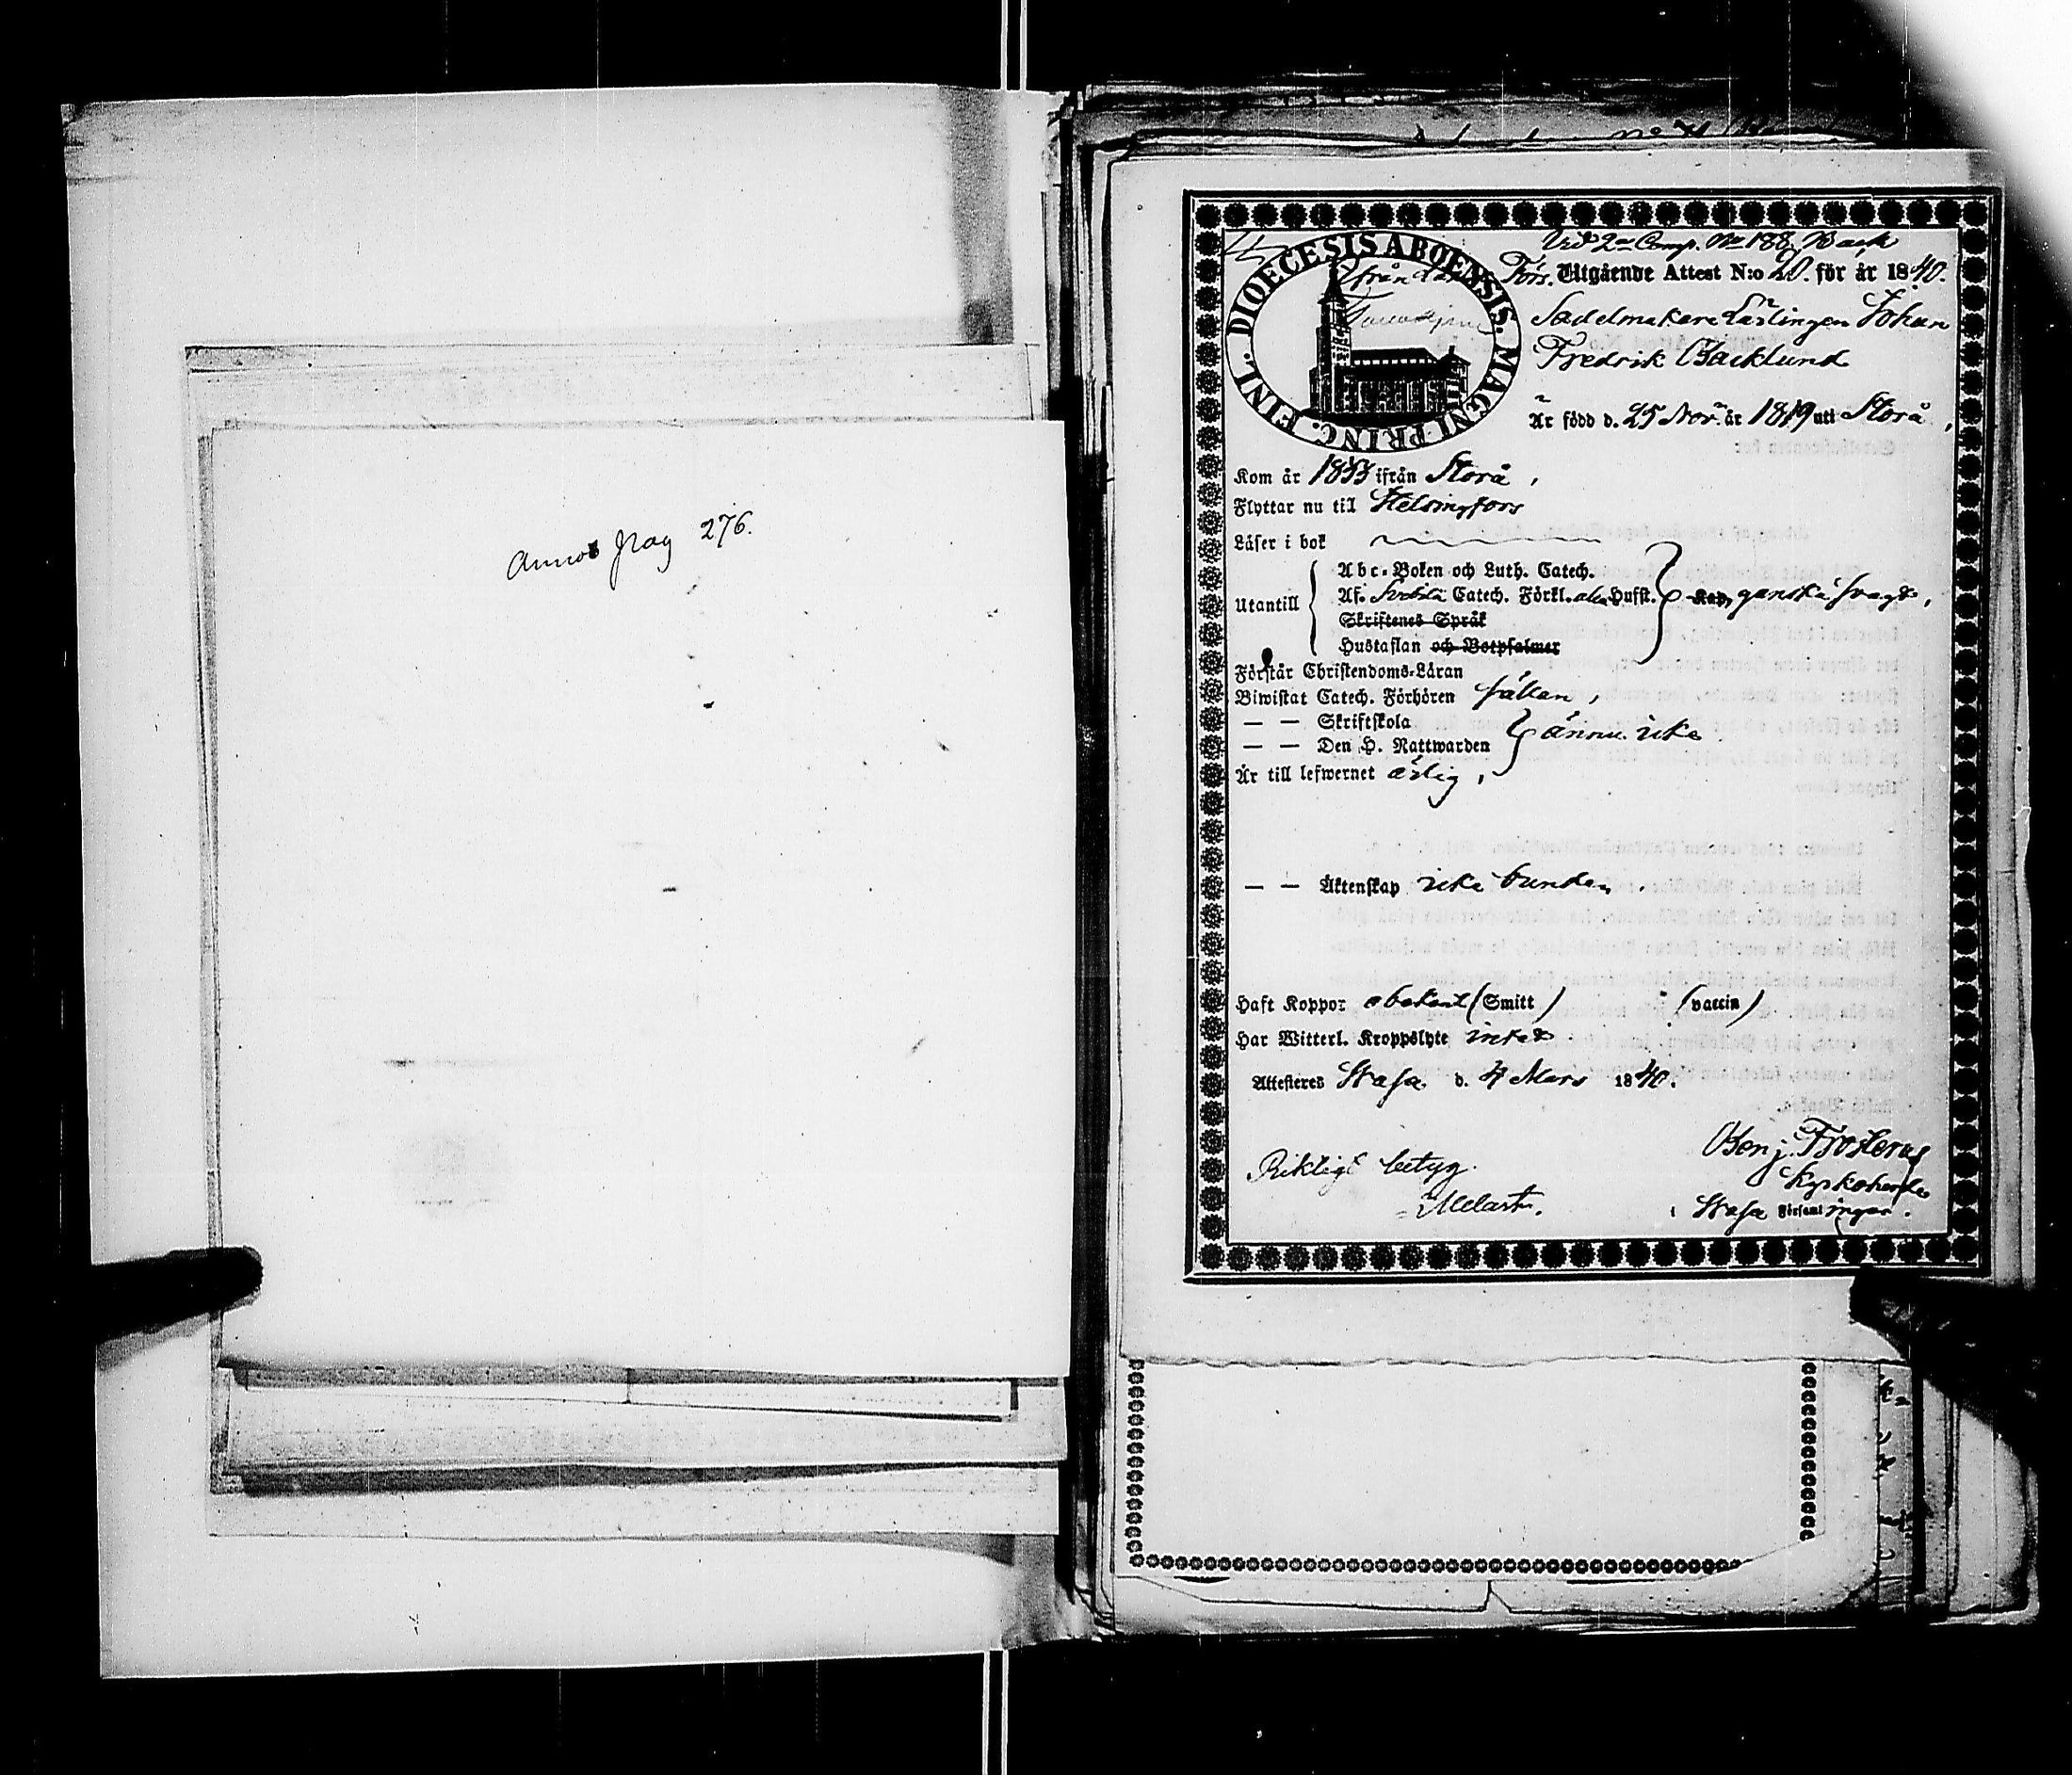 pag 276.
Wid 2n Comp. No 188, Back
DIOECESIS ABOENSIS. MAGNI PRINC. FINL.
ifrån
Förs. Utgående Attest N:o 20. för år 1840.
Sadelmakare Lärlingen Johan
Fredrik Backlund
Är född d. 25 Nov. år 1819 uti Storå,
Kom år 1833 ifrån Storå,
Flyttar nu till Helsingfors
Läser i bok
Utantill
Abc-Boken och Luth. Catech.
Af. Svebelii Catech. Förkl. utan Hufst. ganska svagt,
Skriftenes Språk
Hustaflan och Botpsalmer
Förstår Christendoms-Läran
Biwistat Catech. Förhören sällan,
— — Skriftskola
— — Den H. Nattwarden } ännu icke
Är till lefwernet ärlig,
— — Äktenskap icke bunden.
Haft Koppor obekant (Smitt) (vaccin)
Har Witterl. Kroppslyte intet
Attesteras Wasa d. 4 Mars 1840.
Benj. Frosterus
Riktigt betyg. Kyrkoherde
Melart. i Wasa Församlingar.